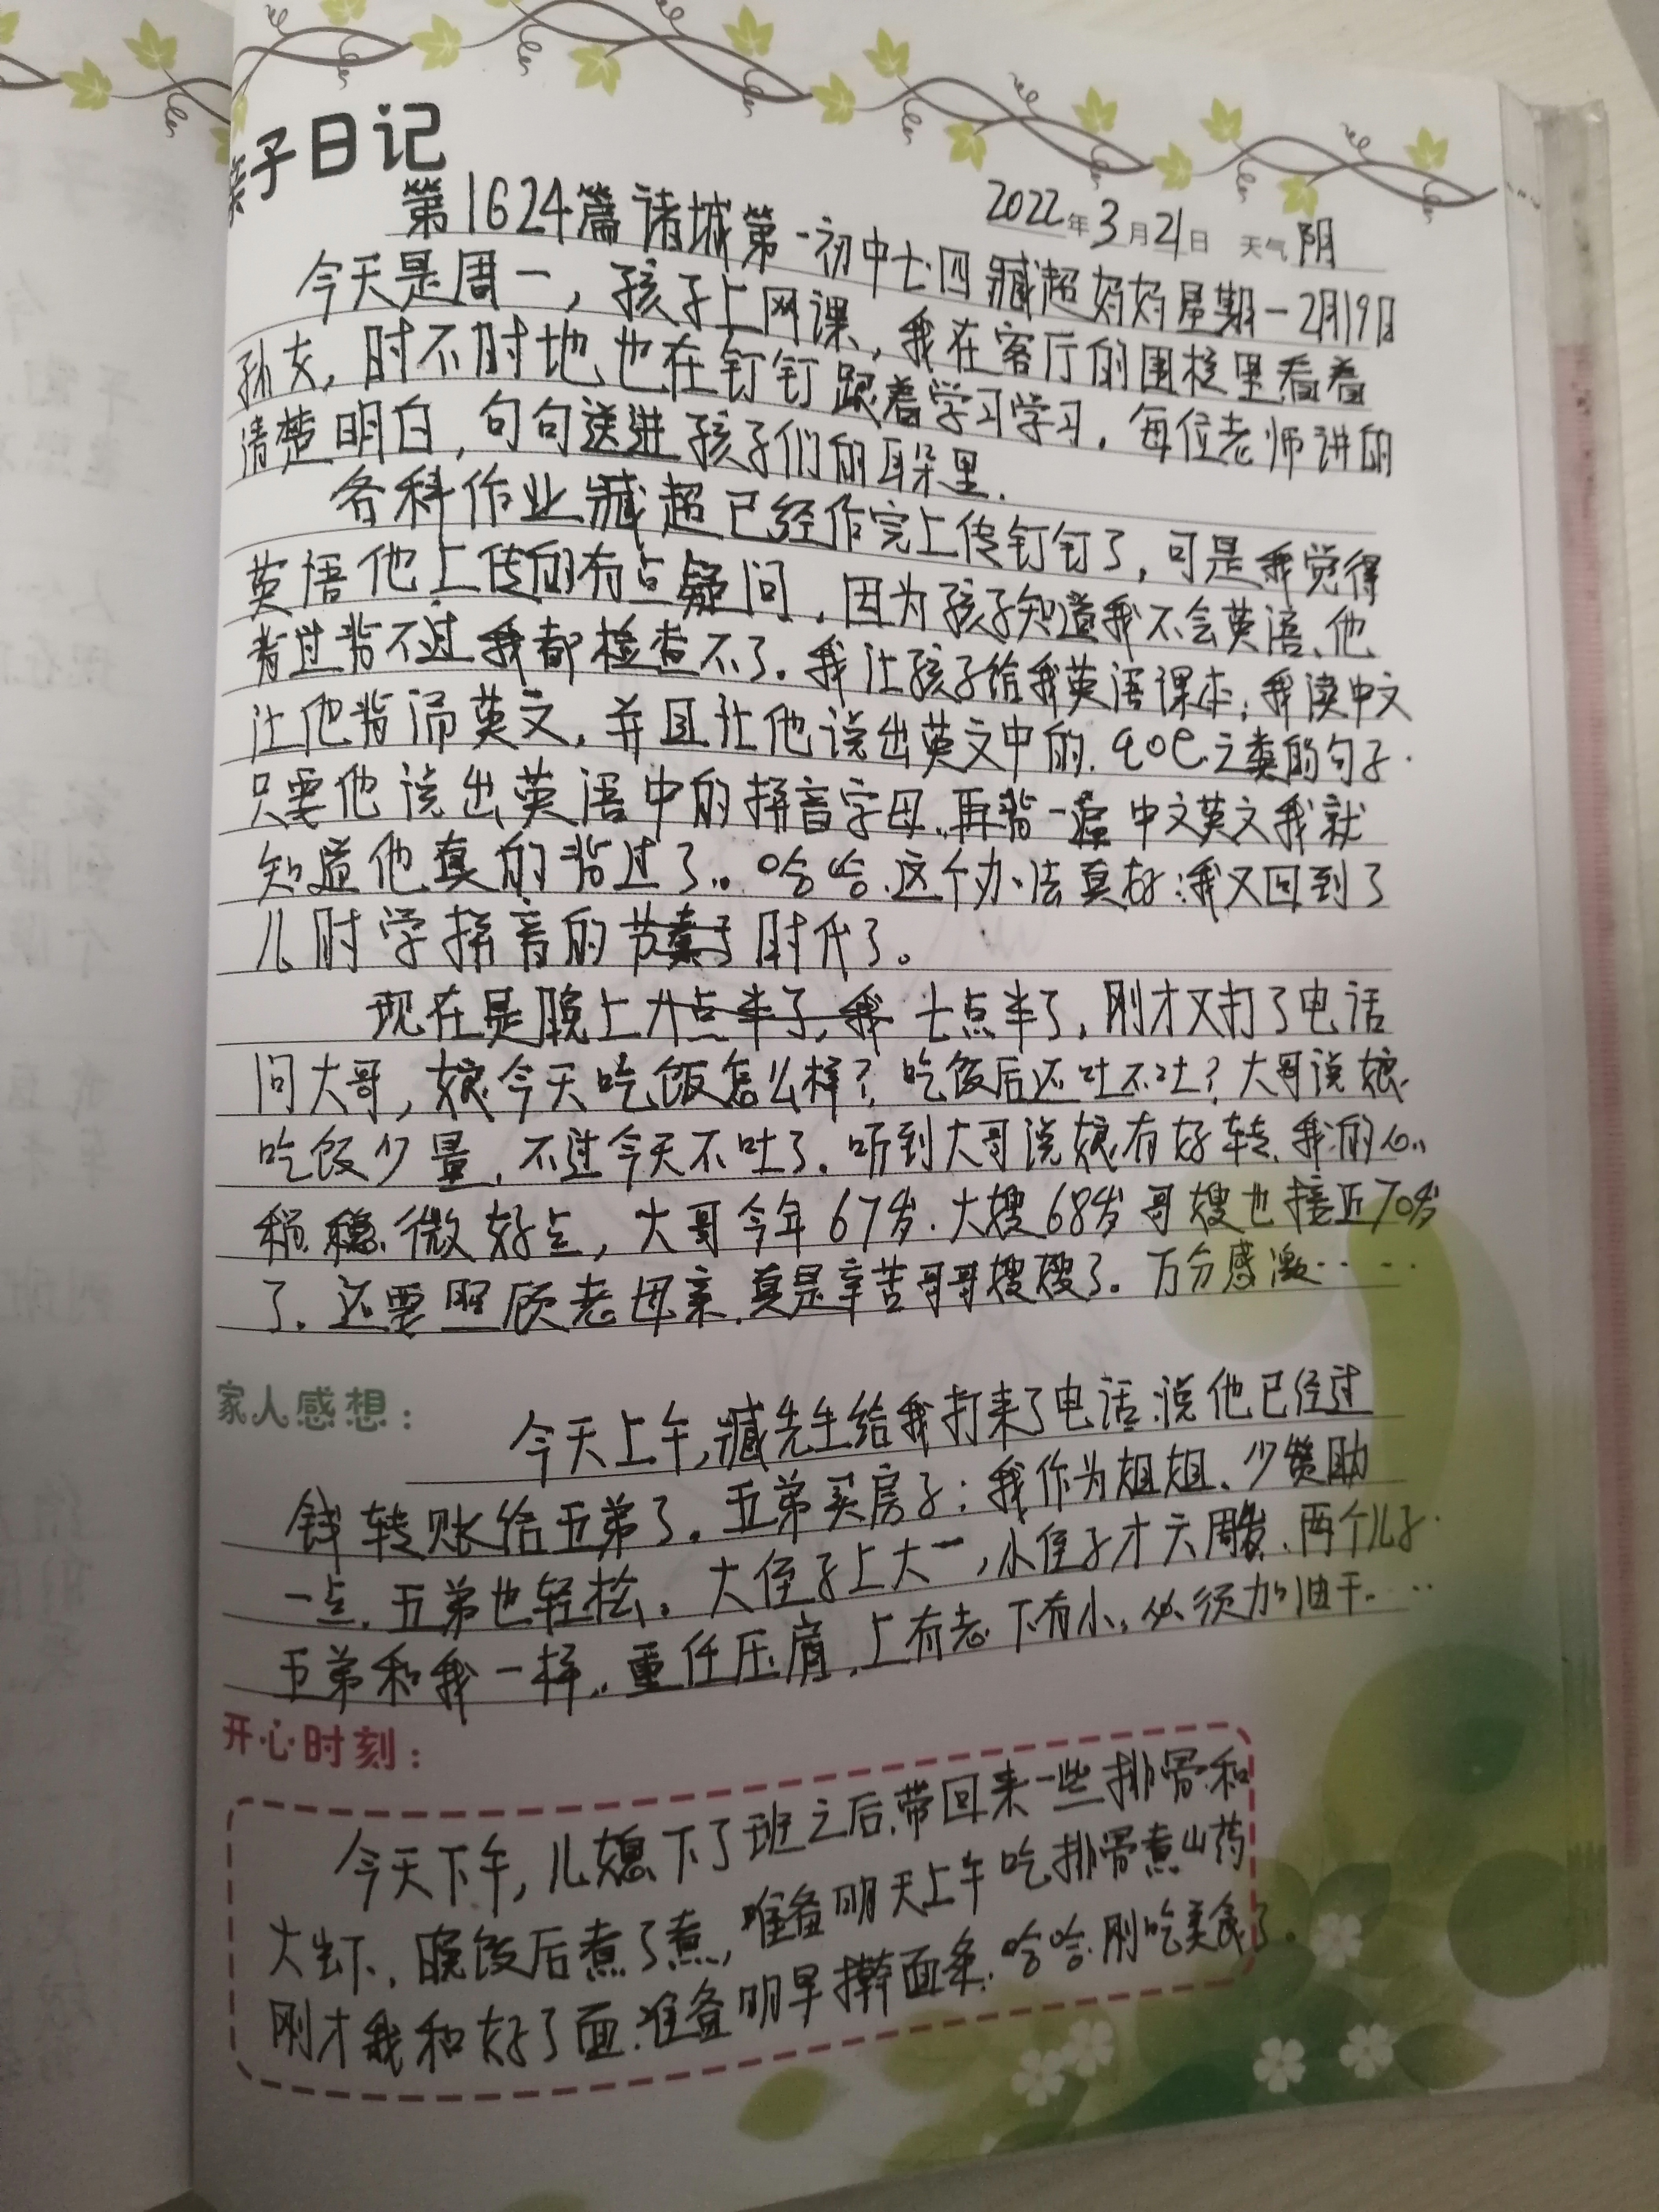 亲子日记
2022年3月21日 天气 阴
第1624篇 诸城第一初中七.四臧超妈妈星期一2月19日
今天是周一，孩子上网课，我在客厅的围栏里看着
孙女，时不时地也在钉钉跟着学习学习。每位老师讲的
清楚明白，句句送进孩子们的耳朵里.
各科作业臧超已经作完上传钉钉了，可是我觉得
英语他上传的有点疑问，因为孩子知道我不会英语、他
背过背不过我都检查不了。我让孩子给我英语课本；我读中文
让他背诵英文，并且让他说出英文中的.之类的句子.
只要他说出英语中的拼音字母，再背一遍中文英文我就
知道他真的背过了。哈哈.这个办法真好；我又回到了
儿时学拼音的时代了。
现在是晚上七点半了，刚才又打了电话
问大哥，娘今天吃饭怎么样？吃饭后还吐不吐？大哥说娘
吃饭少量，不过今天不吐了。听到大哥说娘有好转，我的心
稍微好点，大哥今年67岁.大嫂68岁哥嫂也接近70岁
了。还要照顾老母亲.真是辛苦哥哥嫂嫂了。万分感激……
家人感想：
今天上午，臧先生给我打来了电话.说他已经过
钱转账给五弟了。五弟买房子；我作为姐姐、少赞助
一点.五弟也轻松。大侄子上大一，小侄子才六周岁.两个儿子.
五弟和我一样..重任压肩.上有老下有小，必须加油干……
开心时刻：
今天下午，儿媳下了班之后.带回来一些排骨和
大虾、晚饭后煮了煮，准备明天上午吃排骨煮山药
刚才我和好了面.准备明早擀面条.哈哈.刚吃美食了。